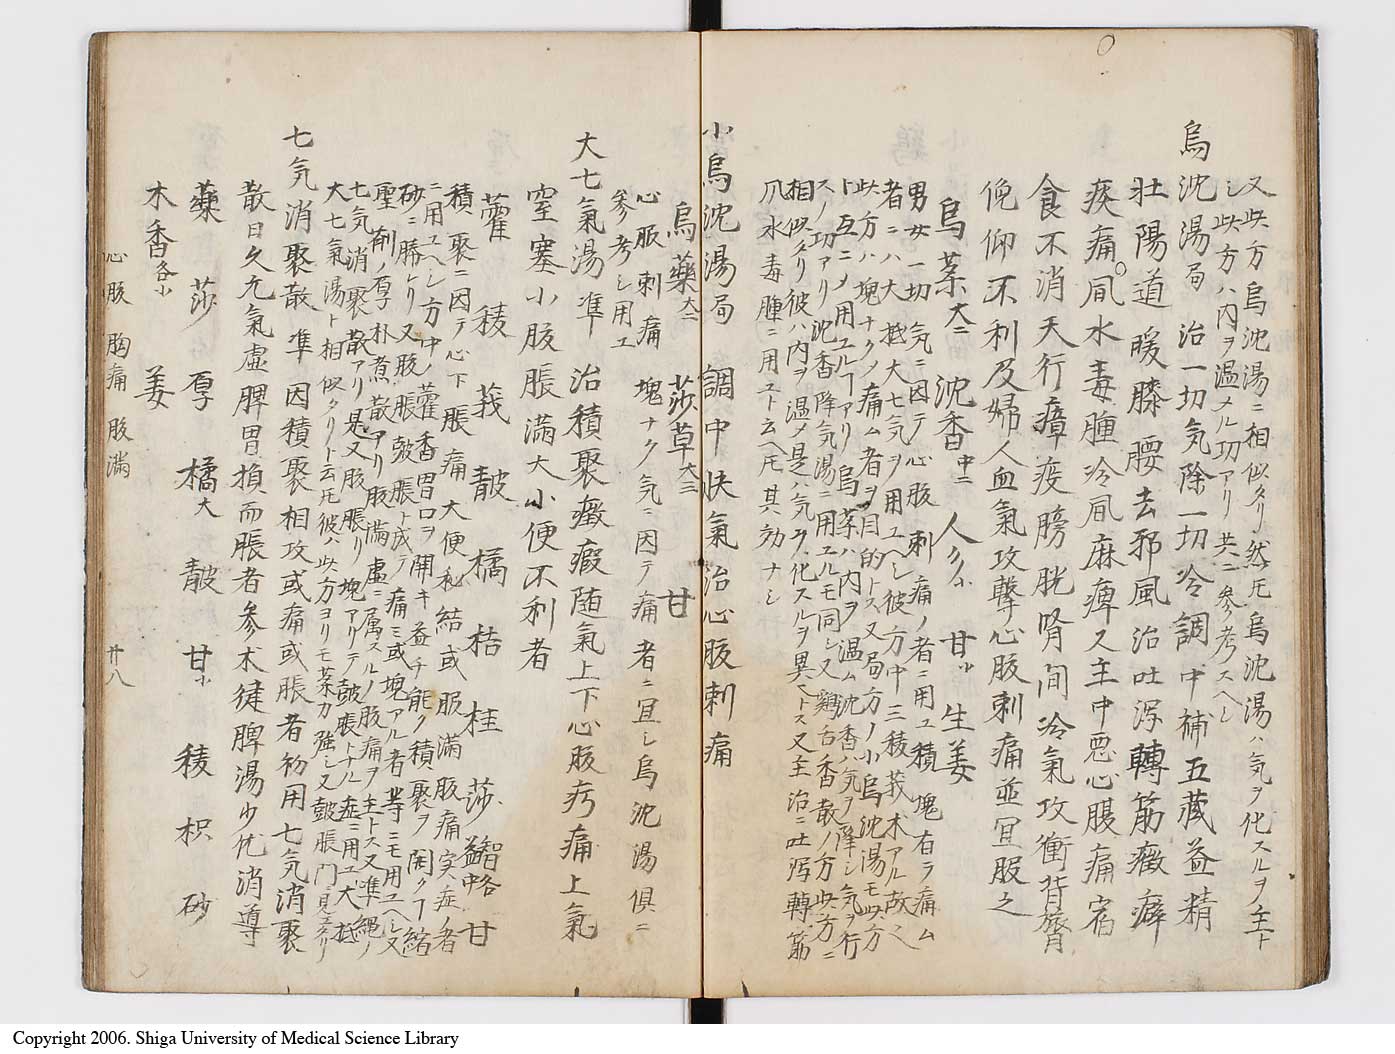 又此方烏沈湯ニ相似タリ然𪜈烏沈湯ハ気ヲ化スルヲ主ト
シ此方ハ内ヲ温メル功アリ共ニ参考スヘシ
烏沈湯局 治一切気除一切冷調中補五蔵益精
壮陽道暖膝腰去邪風治吐瀉轉筋癥癖
疾痛風水毒腫冷風麻痺又主中悪心腹痛宿
食不消天行瘴疫膀胱腎間冷氣攻衝背膂
俛仰不利及婦人血氣攻撃心腹刺痛並宜服之
烏薬大二 沈香中二 人参小 甘小 生姜
男女一切ノ気ニ因テ心腹刺痛ノ者ニ用ユ積塊有ラ痛ム
者ニハ大抵大七気ヲ用ユヘシ彼方中三稜莪朮アル故也
此方ハ塊ナクノ痛ム者ヲ目的トス又局方ノ小烏沈湯モ此方
ト互ニ〆用ユルヿアリ烏薬ハ内ヲ温ム沈香ハ気ヲ降シ気ヲ行
スノ功アリ沈香降気湯ニ用エルモ同シ又鶏舌香散ノ方此方ニ
相似タリ彼ハ内ヲ温メ是ハ気ヲ化スルヲ異トス又主治ニ吐瀉轉筋
風水毒腫ニ用ユト云ヘ𪜈其効ナシ
小烏沈湯局 調中快氣治心腹刺痛
烏藥大二 莎草大三 甘
心腹刺痛 塊ナク気ニ因テ痛者ニ宜シ烏沈湯倶ニ
参考シ用ユ
大七氣湯準 治積聚癥瘕随氣上下心腹㽲痛上氣
窒塞小腹脹滿大小便不利者
藿 稜 莪 皷 橘 桔 桂 莎 益智 甘
積聚ニ因テ心下脹痛大便秘結或腹滿腹痛実症ノ者
ニ用ユヘシ方中ノ藿香胃口ヲ開キ益チ能ク積聚ヲ開クヿ縮
砂ニ勝レリ又腹脹皷脹ト成テ痛ミ或塊アル者等ニモ用ユヘシ又
聖剤ノ厚朴煮散アリ腹滿虚ニ属スルノ腹痛ヲ主トス又準縄ノ
七気消聚散アリ是又腹脹リ塊アリテ皷脹トナル症ニ用ユ大抵
大七氣湯ト相似タリト云𪜈彼ハ此方ヨリモ薬力強シ又皷脹門ニ見ヱタリ
七気消聚散準 因積聚相攻或痛或脹者初用七気消聚
散日久元氣虚脾胃損而脹者参术徤脾湯少佐消導
藥 莎 厚 橘大 皷 甘小 稜 枳 砂
木香各小 姜
心腹 胸痛 腹滿 廿八
Copyright 2006. Shiga University of Medical Science Library